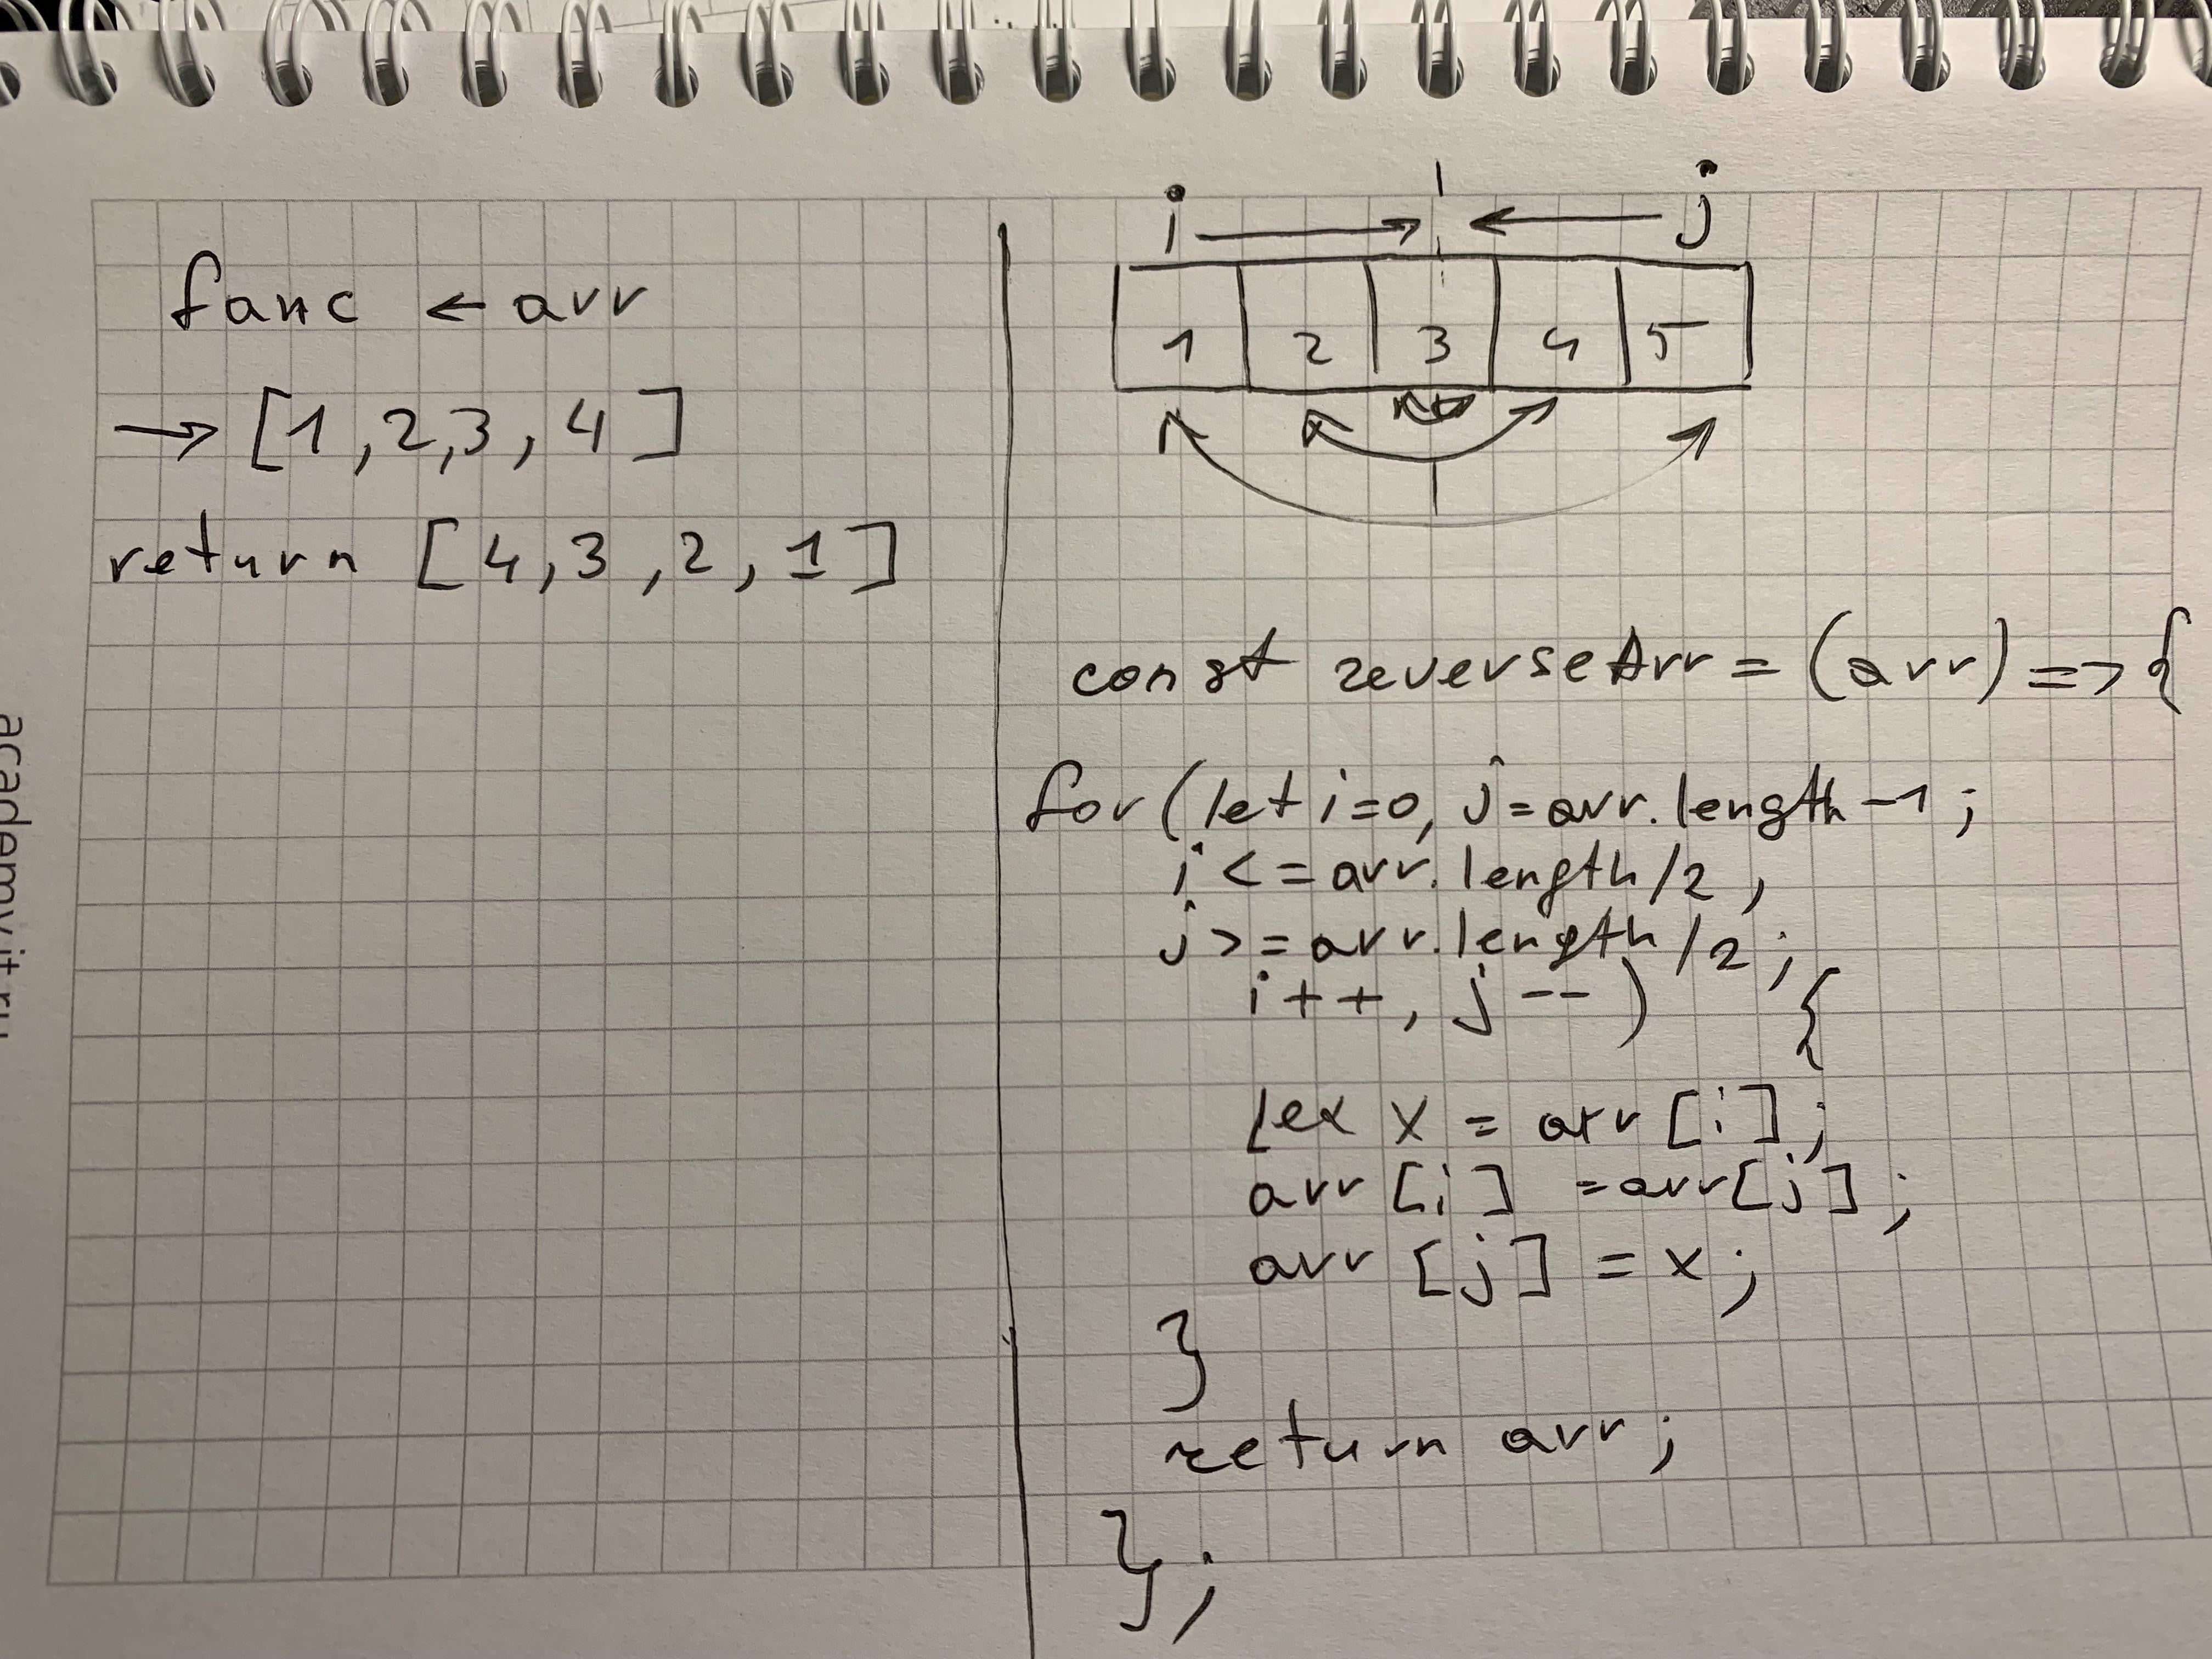 func ← arr
→ [1,2,3,4]
return [4,3,2,1]
i → ← j
1 2 3 4 5
const reverseArr = (arr) => {
for (let i=0, j=arr.length-1;
i <= arr.length/2,
j >= arr.length/2;
i++, j--) {
let x = arr[i];
arr[i] = arr[j];
arr[j] = x;
}
return arr;
};
academyit.ru